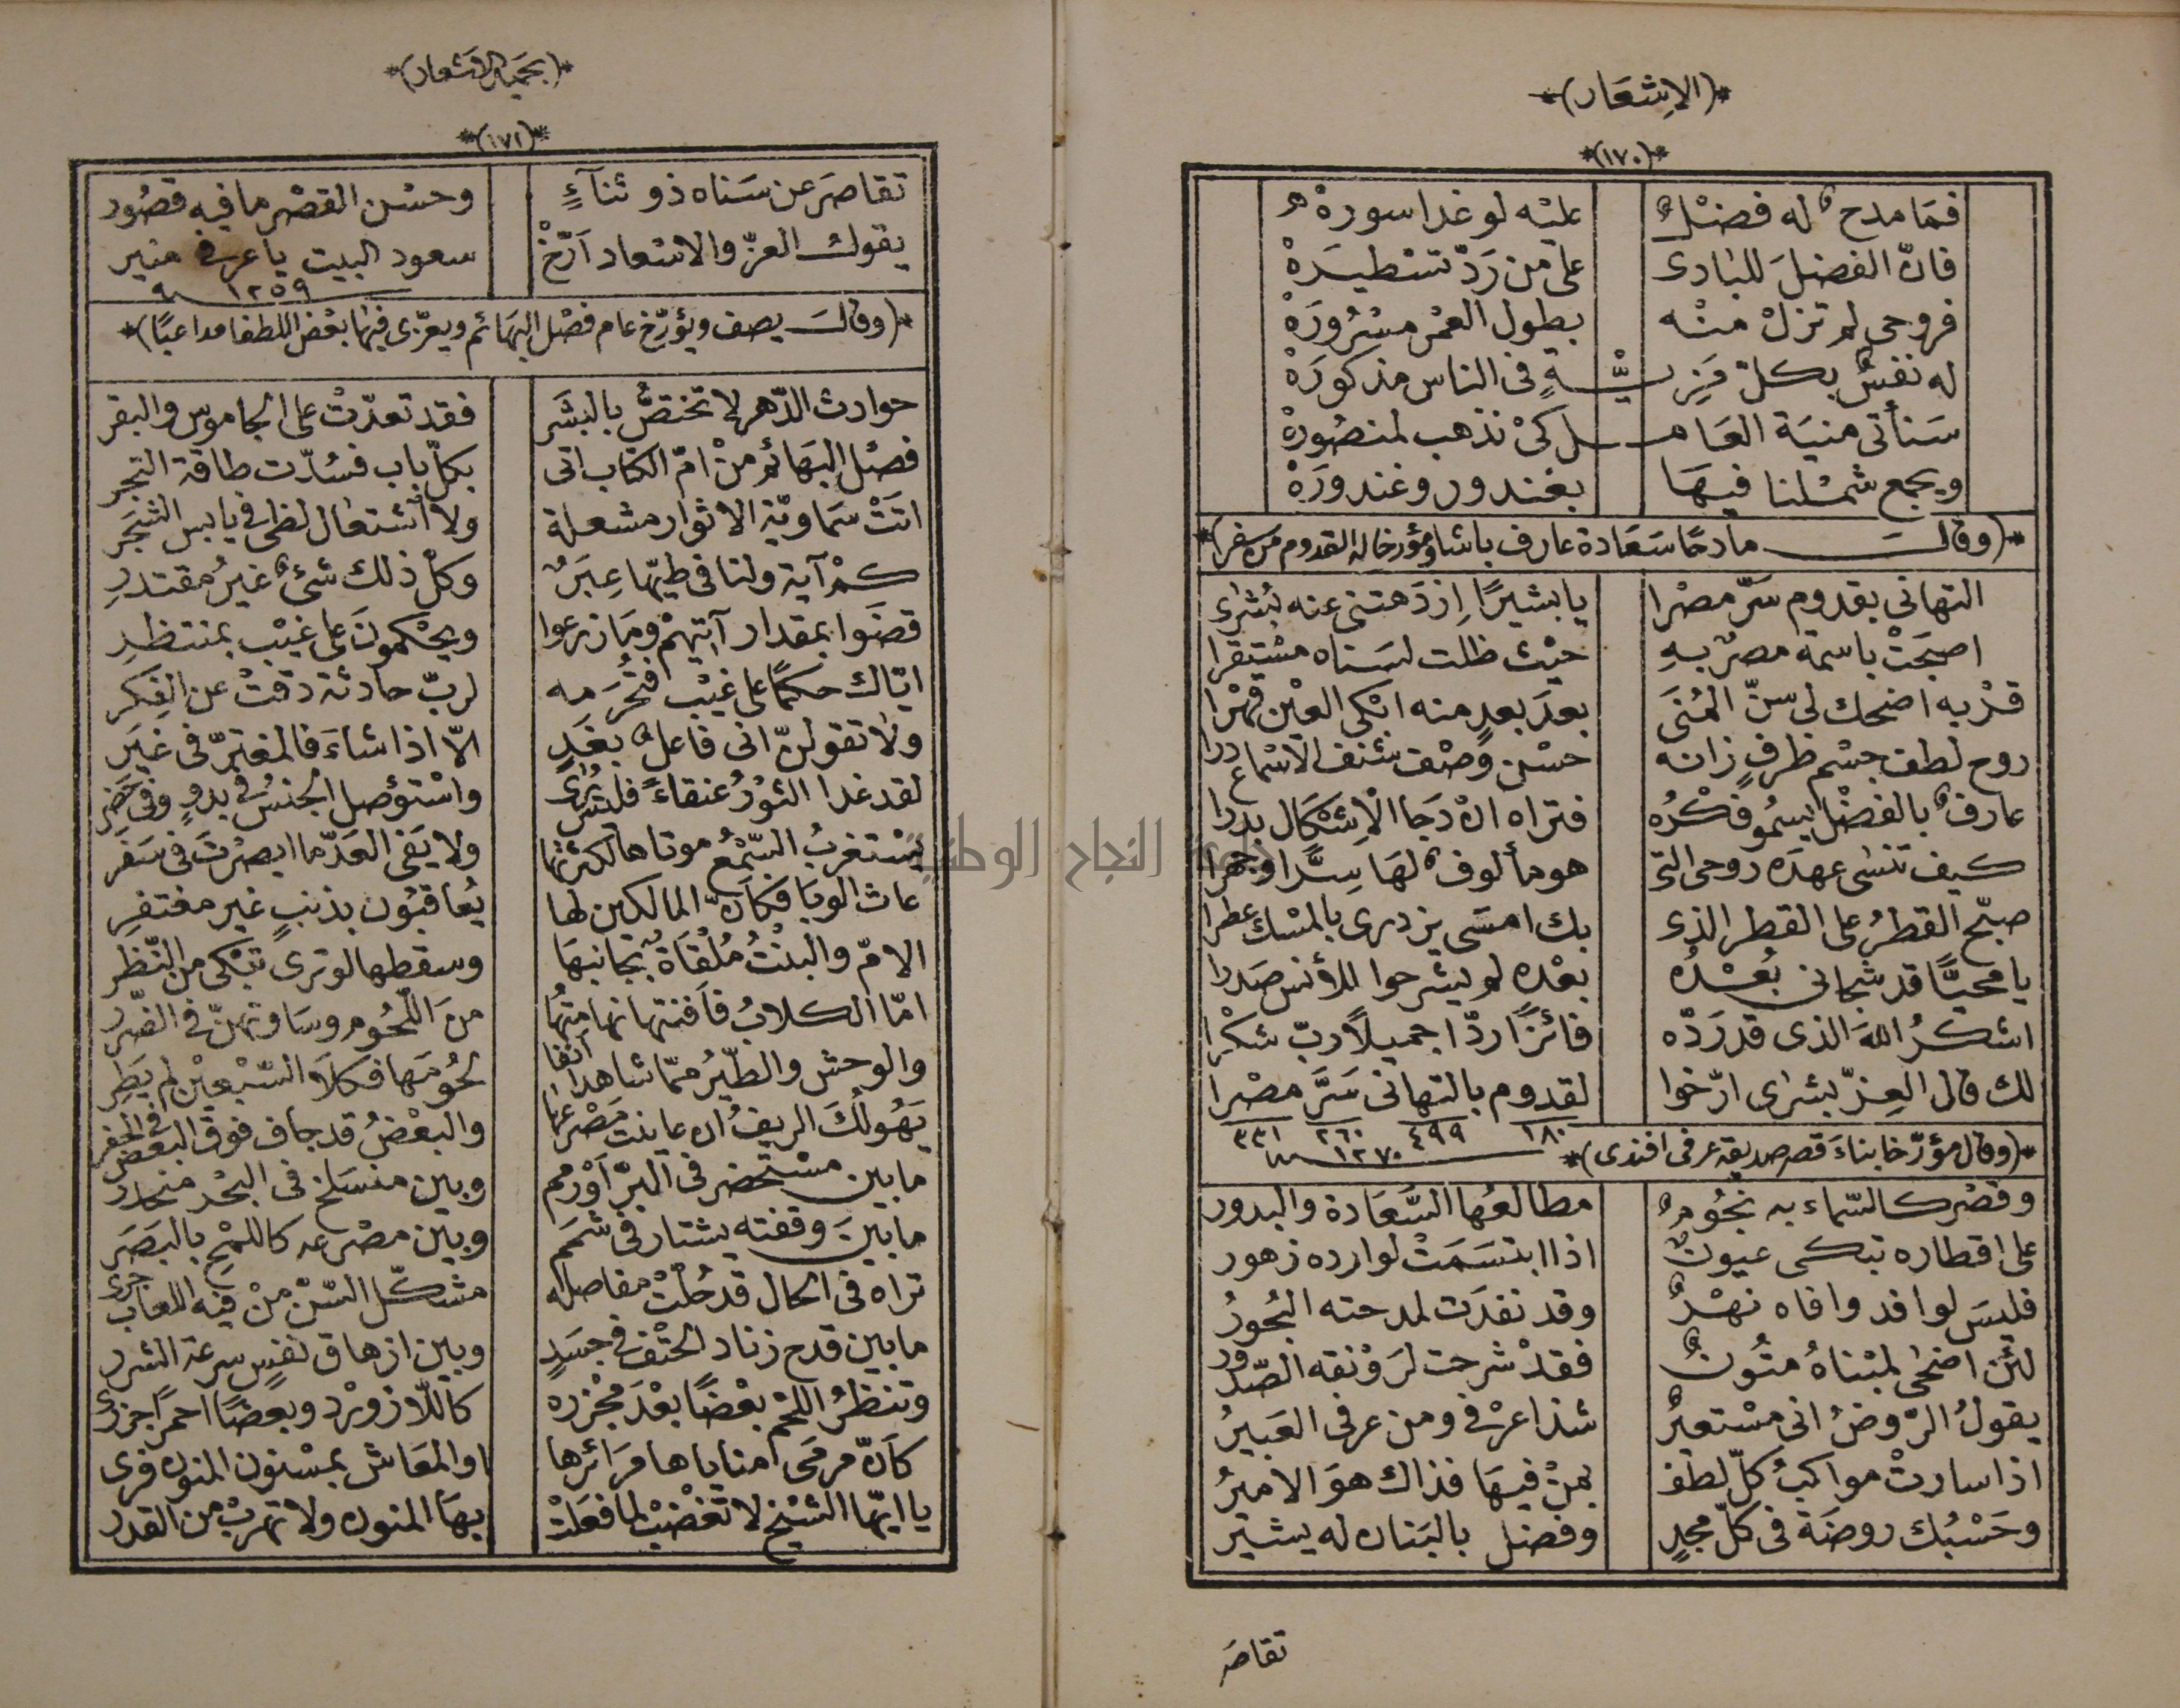 *(الاِشعَار)*
*(١٧٠)*
فمَا مدح له فضْلٌ عليْه لو غدا سوره
فانّ الفضلَ للبَادى على من رَدّ تسْطيَرهْ
فروحى لم تزلْ منْه بطول العمْر مسْرُورَهْ
له نفسٌ بكلّ مَزِيَّةٍ فى الناس مذكورَهْ
سَنأتى منيَة العَامل كىْ نذهب لمنصُورهْ
ويجمع شمْلنا فيهَا بغندور وغندورَهْ
*(وقالَ مادحًا سَعَادة عارف باشا ومؤرخا له القدوم من سفر)*
التهانى بقدوم سَرّ مصْرا يا بشيرًا اِزدَهتنى عنه بُشرٰى
اصبحَتْ باسمة مصرٌ بهِ حيْث ظلت لسَناه مسْتقرا
قدْ به اضحك لى سنّ المُنَى بعدَ بعدٍ منه ابْكى العيْن قهْرا
روح لطف جسْم ظرفٍ زانه حسْن وصْف شنف الاسْماع درا
عارف بالفضْل يسمُو فكْرُه فتراه انْ دَجَا الْاِشكَال بدرا
كيف تنسٰى عهدَه روحى التى هو مألوف لهَا سِرًّا وجهرا
صبّح القطرُ على القطر الذى بك امسَى يزدرى بالمسْك عطرا
يا محيًّا قد شجانى بُعْدُه بعْده لم يشرحوا للأنس صَدرا
اشكرُ اللهَ الذى قد رَدّه فائزًا ردّا جميلًا ربّ شكْرا
لك قال العِزّ بشراى ارّخوا لقدوم بالتهانى سَرَّ مصْرا
١٨٠ ٤٩٩ ٢٦٠ ٣٣١
١٢٧٠
*(وقال مؤرّخا بناءَ قصر صديقه عرفى افندى)*
وقصْر كالسّماء به نجُومٌ مطالعُها السَّعَادة والبدور
على اقطاره تبكى عيونٌ اذا ابتسَمَتْ لوارده زهور
فليسَ لوافد وافاه نهْرٌ وقد نفدَت لمدحته البُحورُ
لئن اضحٰى لمبْناهُ متُونٌ فقدْ شرحت لرَوْنقه الصّدور
يقولُ الرّوضُ انى مسْتعيرٌ شذا عرْفى ومن عرفى العَبيرُ
اذا سارتْ مواكبُ كلّ لطف بمنْ فيهَا فذاك هوَ الاميرُ
وحَسْبُك روضَة فى كلّ مجدٍ وفضل بالبَنان له يشير
تقاصَر
*(بحَميْد الاشعار)*
*(١٧١)*
تقاصَر عن سَناه ذو ثنآءٍ وحسْن القصْر ما فيه قصُور
يقول العزّ والاسْعاد اَرّخْ سعود البيت يا عرفى منير
١٢٥٩
*(وقالَ يصف ويؤرّخ عام فصْل البهَائم ويعزّى فيها بعْض اللطفا مداعبًا)*
حوادث الدّهر لا تختصُّ بالبشَر فقد تعدّتْ على الجاموس والبقر
فصْل البهَائم منْ امّ الكتاب اتى بكلّ باب فسُدّت طاقة التجر
اتَتْ سَماويّة الاثوار مشعلة ولا اُشتعال لظى فى يابس الشجَر
كمْ آية ولنا فى طيّها عِبَرٌ وكلّ ذلك شئ غيرُ مقتدرِ
قضَوا بمقدار آتيهمْ ومَا زرعوا ويحْكمونَ على غيْب بمنتظرِ
ايّاك حكمًا على غيْب فتُحْرَمه لربّ حادثة دقتْ عن الفِكر
ولا تقولنّ انى فاعل بغَدٍ الّا اذا شاءَ فالمغترّ فى غيَر
لقد غدا الثوْرُ عنقاءً فليسَ يُرى واسْتؤصل الجنسُ فى بدوٍ وفى حَضر
يسْتغربُ السّمْعُ موتاها لكثرتها ولا يَفى العَدّ ما ابصرْتَ فى سَفَر
عاث الوبَا فكانّ المالكين لها يُعاقبُون بذنبٍ غير مغتفرِ
الامّ والبنْتُ مُلْقَاةٌ بجَانبهَا وسقطها لو ترى تبْكى من النّظر
امّا الكلابُ فافنتها نهامتها منَ اللّحُوم وسَاوتهنّ فى الضّرر
والوحش والطّيرُ ممّا شاهدا انفا لحُومَها فكلَا السّبْعيْن لم يَطِر
يَهُولُكَ الريفُ ان عاينت مَصْرعها والبعْضُ قد جاف فوق البعْض فى الحفر
ما بين مسْتحضر فى البرّ اَوْ رمم وبين منسَلخ فى البحْر منحدر
ما بينَ وقفته يشتار فى شمَم وبين مصْرعه كاللمْح بالبَصَر
تراه فى الحال قد حُلتْ مفاصله مشكّل السّنّ منْ فيه اللعاب جرى
ما بين قدح زناد الحتْف فى جسَدٍ وبين ازهاق نفسٍ سرعة الشرر
وتنظرُ اللحْم بعْضًا بعْدَ مجْزره كاللّازوَرْد وبعضًا احمرَا جزرى
كأنّ مرمَى مناياها مَرَائرها او المعَاش بمسْنون المنون فرى
يا ايّها الشيْخ لا تغضبْ لما فعَلتْ بهَا المنون ولا تهربْ من القدر